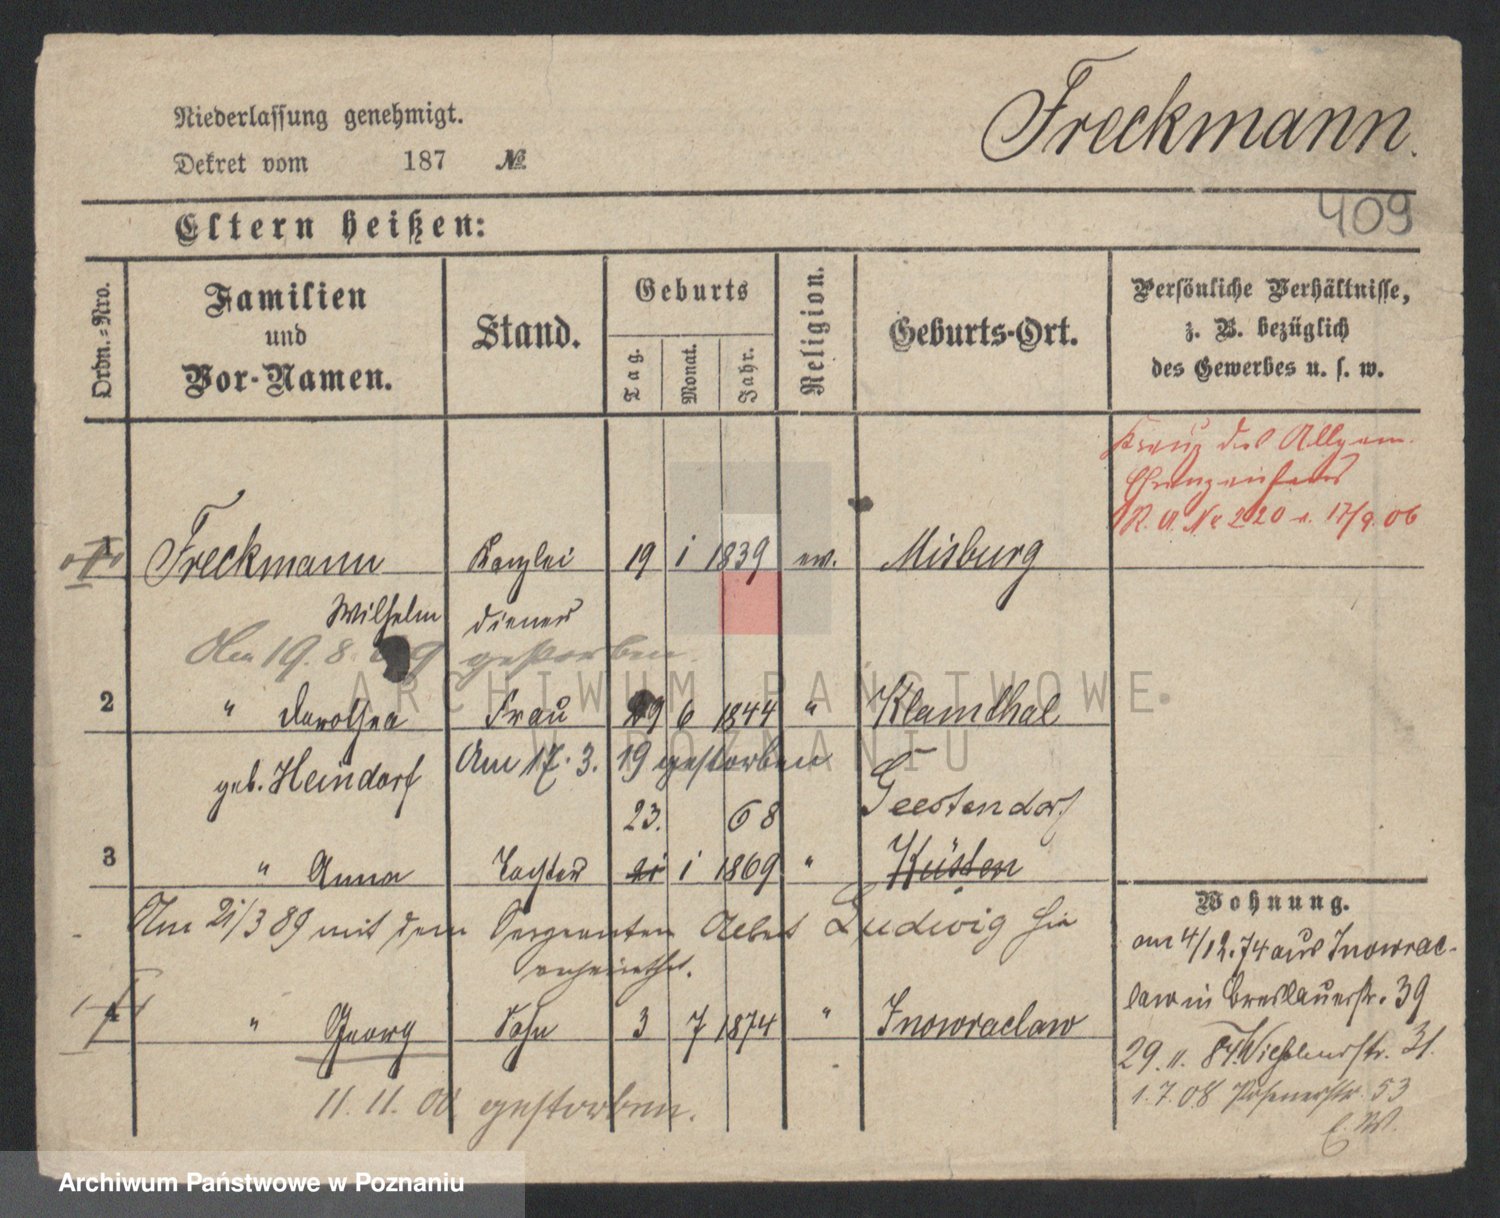 Niederlassung genehmigt.
Dekret vom 187 №
Freckmann.
409
Eltern heißen:
Ordn.-Nro.
Familien
und
Vor-Namen.
Stand.
Geburts
Tag.
Monat.
Jahr.
Religion.
Geburts-Ort.
Persönliche Verhältnisse,
z. B. bezüglich
des Gewerbes u. s. w.
Kreuz des Allgem.
Ehrenzeichens
R. A. No 220 v. 17/9. 06
1 Freckmann Kanzlei 19 1 1839 ev. Misburg
Wilhelm diener
Am 19. 8. 9 gestorben.
2 " Dorothea Frau 29 6 1844 " Klamthal
geb. Heindorf Am 17. 3. 19 gestorben
23. 68 Geestendorf
3 " Anna Tochter 21 1 1869 " Küsten
Am 21/3 89 mit dem Sergeanten Albert Ludwig hie
verheirathet.
4 " Georg Sohn 3 7 1874 " Inowraclaw
11. 11. 00 gestorben.
Wohnung.
am 4/12. 74 aus Inowrac-
law in Breslauerstr. 39
29. 11. 84 Wilhelmstr. 31.
1. 7. 08 Posenerstr. 53
E. W.
ARCHIWUM PAŃSTWOWE
W POZNANIU
Archiwum Państwowe w Poznaniu